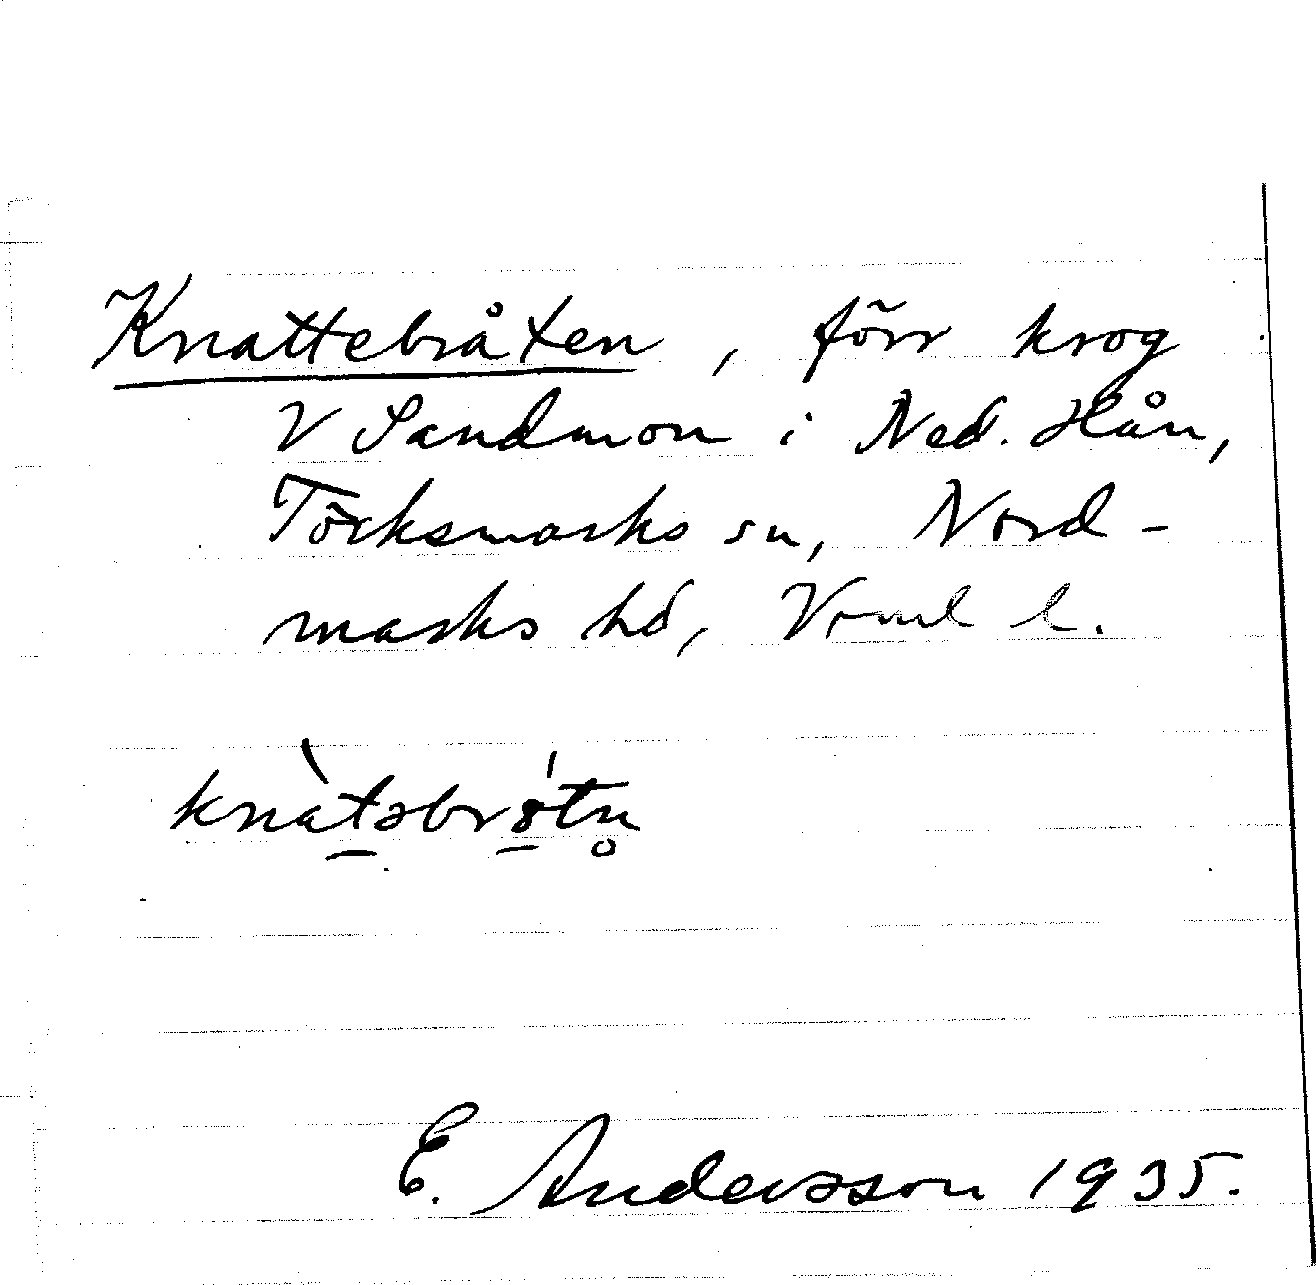 Knattebråten, förr krog
V Sandmon i Ned. Hån,
Töcksmarks sn, Nord-
marks hd, Vrml l.
knàtəbrótn̥
E. Andersson 1935.